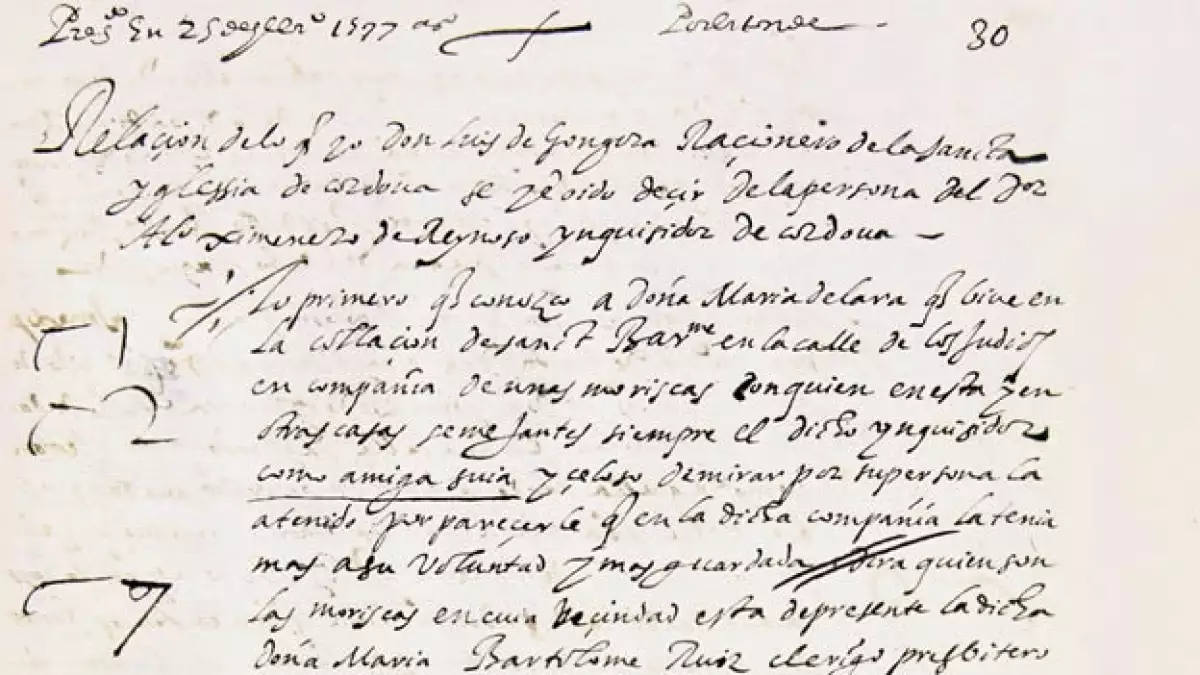 Pres.do En 25 de 1597 as 30
Relaçion de lo q yo Don Luis de Gongora Raçionero de la sancta
yglessia de cordoua se y e oido deçir de la persona del Dor
Alo ximenez de Reynoso ynquisidor de cordoua —
Lo primero q conozco a Doña Maria de lara q biue en
la collaçion de sanct Barme en la calle de los Judios
en compañia de unas moriscas con quien en esta y en
otras casas semejantes siempre el dicho ynquisidor
como amiga suia y çeloso de mirar por su persona la
a tenido por pareçerle q en la dicha compañia la tenia
mas a su voluntad y mas guardada // dira quien son
las moriscas en cuia veçindad esta de presente la dicha
Doña Maria Bartolome Ruiz clerigo presbitero
1
2
7